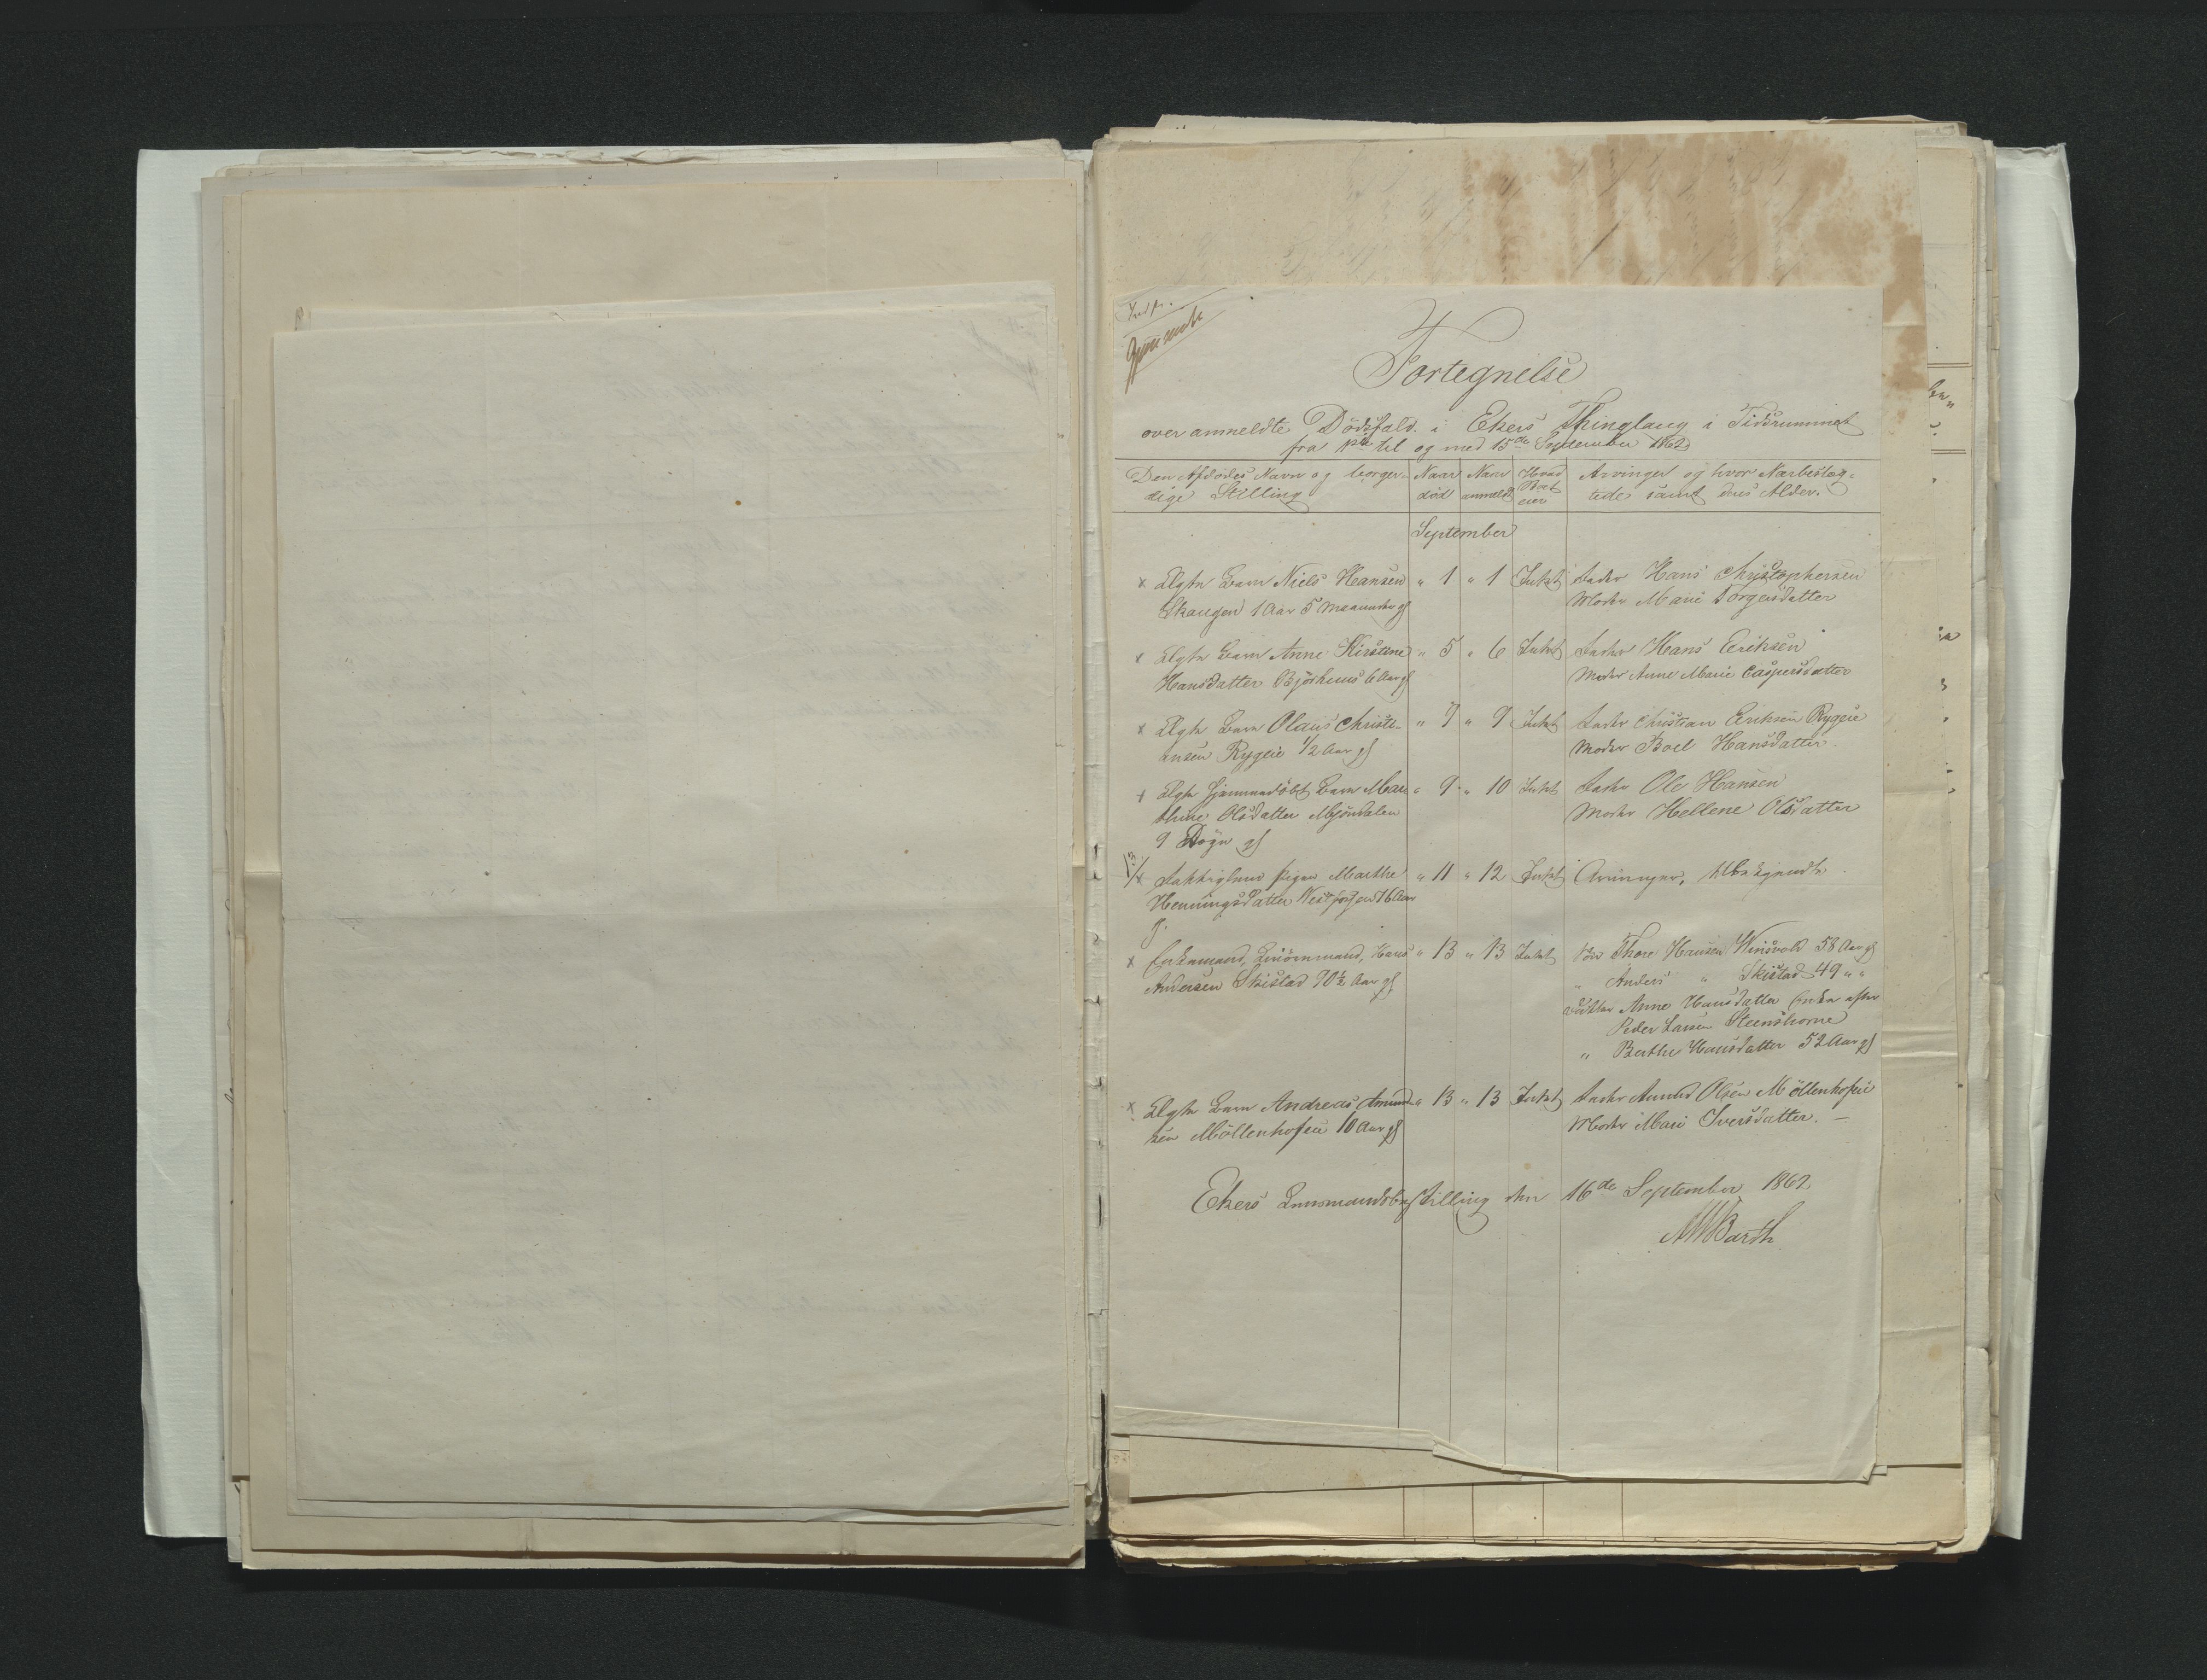 Indf.
Fortegnelse
over anmeldte Dödsfald i Ekers Thinglaug i Tidsrummet
fra 1ste til og med 15de September 1862
Den Afdödes Navn og borger- Naar Naar Hvad Arvinger og hvor Nærbeslæg-
lige Stilling död anmeldt Boet eier tede samt dees Alder.
September
x Ægte Barn Niels Hansen " 1 " 1 Intet Fader Hans Christophersen
Skaugen 1 Aar 5 Maaneder gl Moder Marie Torgersdatter
x Ægte Barn Anne Kirstine " 5 " 6 Intet Fader Hans Eriksen
Hansdatter Björkuus 6 Aar gl Moder Anne Marie Caspersdatter
x Ægte Barn Olaus Christi- " 7 " 9 Intet Fader Christian Eriksen Rygeie
ansen Rygeie 1/2 Aar gl Moder Boel Hansdatter.
x Ægte hjemmedöbt Barn Mar- " 9 " 10 Intet Fader Ole Hansen
thine Olsdatter Mjöndalen Moder Hellene Olsdatter
9 Dögn gl
x Fattiglem Pigen Marthe " 11 " 12 Intet Arvinger, Ubekjendte
Henningsdatter 76 Aar
g.
x Enkemand, Hans " 13 " 13 Intet Sön Thore Hansen Winsvold 58 Aar gl
Andersen Skistad 90½ Aar gl " Anders " Skistad 49 " "
Dötter Anne Hansdatter Enke efter
Peder Larsen Steenshorne
" Berthe Hansdatter 52 Aar gl
x Ægte Barn Andreas Amund- " 13 " 13 Intet Fader Amund Olsen Möllenhofeie
sen Möllenhofeie 10 Aar gl Moder Mari Iversdatter. —
Ekers Lensmandsbestilling den 16de September 1862
Barth